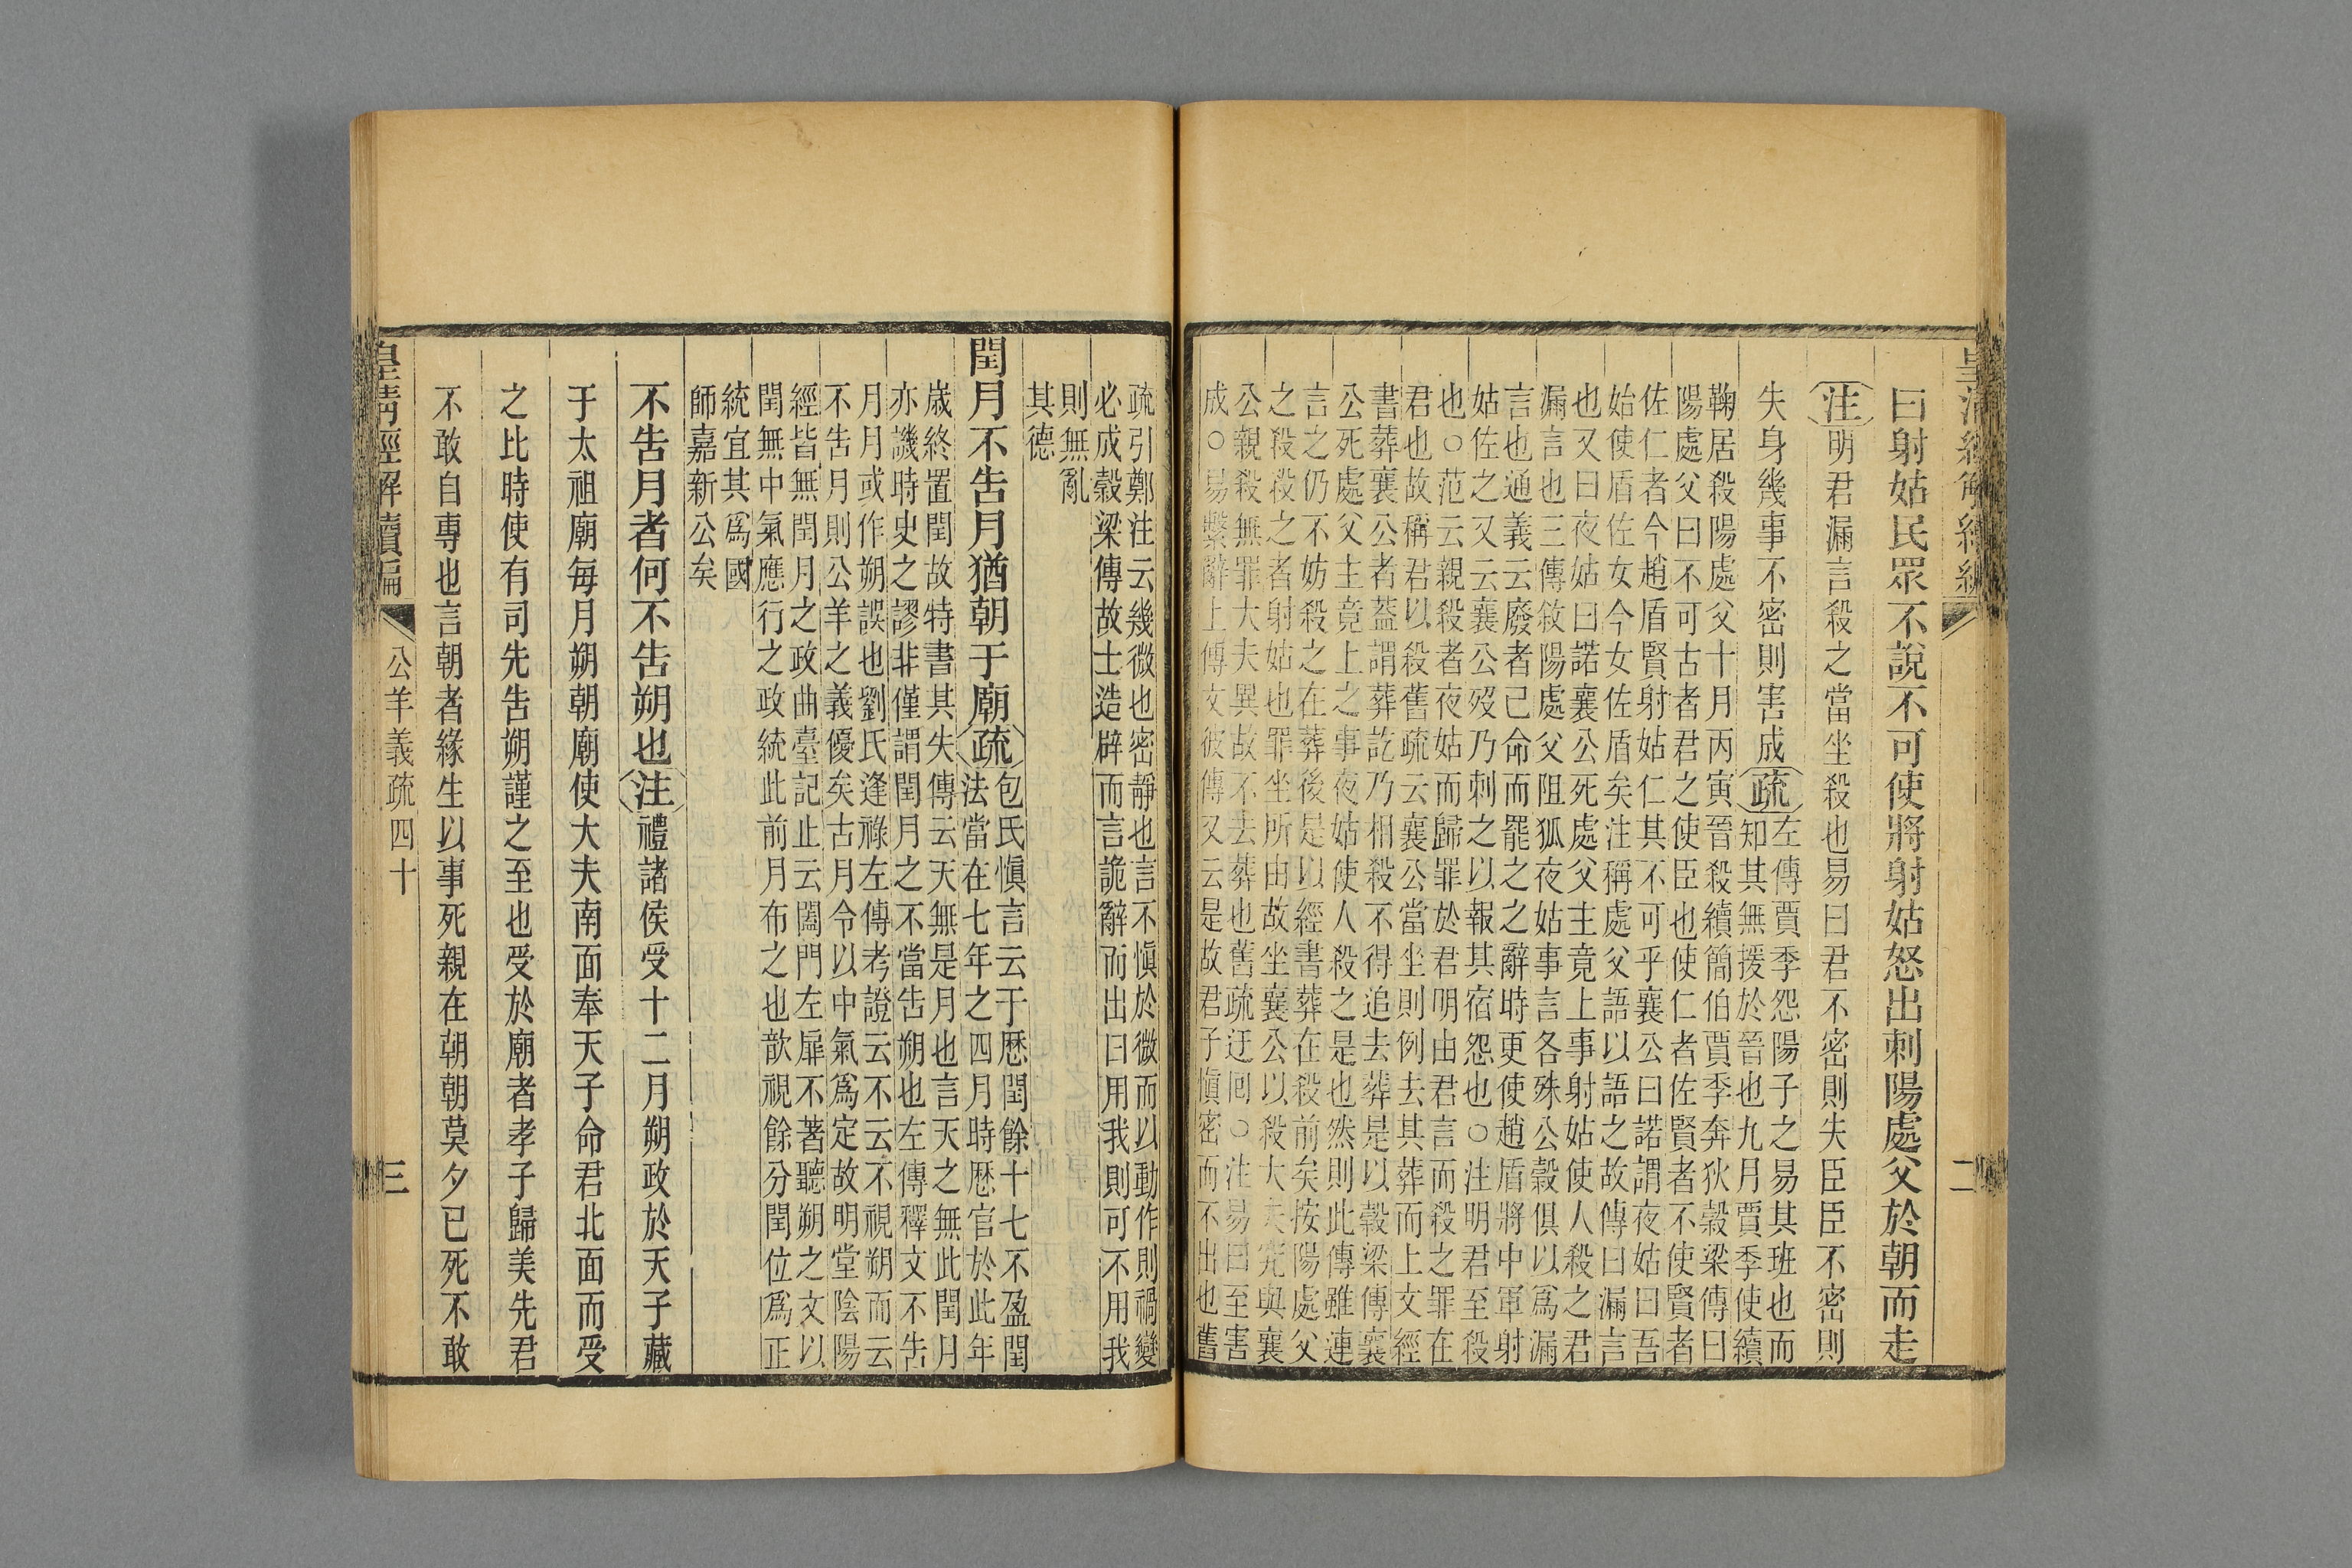 皇清經解續編
二
曰射姑民眾不說不可使將射姑怒出刺陽處父於朝而走
注明君漏言殺之當坐殺也易曰君不密則失臣臣不密則
失身幾事不密則害成疏左傳賈季怨陽子之易其班也而
知其無援於晉也九月賈季使續
鞠居殺陽處父十月丙寅晉殺續簡伯賈季奔狄榖梁傳曰
陽處父曰不可古者君之使臣也使仁者佐賢者不使賢者
佐仁者今趙盾賢射姑仁其不可乎襄公曰諾謂夜姑曰吾
始使盾佐女今女佐盾矣注稱處父語以語之故傳曰漏言
也又曰夜姑曰諾襄公死處父主竟上事射姑使人殺之君
漏言也三傳敘陽處父阻狐夜姑事言各殊公榖俱以爲漏
言也通義云廢者已命而罷之之辭時更使趙盾將中軍射
姑佐之又云襄公歿乃刺之以報其宿怨也○注明君至殺
也○范云親殺者夜姑而歸罪於君明由君言而殺之罪在
君也故稱君以殺舊疏云襄公當坐則例去其葬而上文經
書葬襄公者蓋謂葬訖乃相殺不得追去葬是以榖梁傳襄
公死處父主竟上之事夜姑使人殺之是也然則此傳雖連
言之仍不妨殺之在葬後是以經書葬在殺前矣按陽處父
之殺殺之者射姑也罪坐所由故坐襄公以殺大夫究與襄
公親殺無罪大夫異故不去葬也舊疏迂回○注易曰至害
成○易繫辭上傳文彼傳又云是故君子慎密而不出也舊
疏引鄭注云幾微也密靜也言不慎於微而以動作則禍變
必成榖梁傳故士造辟而言詭辭而出曰用我則可不用我
則無亂
其德
閏月不告月猶朝于廟疏包氏慎言云于厯閏餘十七不盈閏
法當在七年之四月時厯官於此年
歲終置閏故特書其失傳云天無是月也言天之無此閏月
亦譏時史之謬非僅謂閏月之不當告朔也左傳釋文不告
月月或作朔誤也劉氏逢祿左傳考證云不云不視朔而云
不告月則公羊之義優矣古月令以中氣爲定故明堂陰陽
經皆無閏月之政曲臺記止云闔門左扉不著聽朔之文以
閏無中氣應行之政統此前月布之也歆視餘分閏位爲正
統宜其爲國
師嘉新公矣
不告月者何不告朔也注禮諸侯受十二月朔政於天子藏
于太祖廟每月朔朝廟使大夫南面奉天子命君北面而受
之比時使有司先告朔謹之至也受於廟者孝子歸美先君
不敢自專也言朝者緣生以事死親在朝朝莫夕已死不敢
皇清經解續編
公羊義疏四十
三